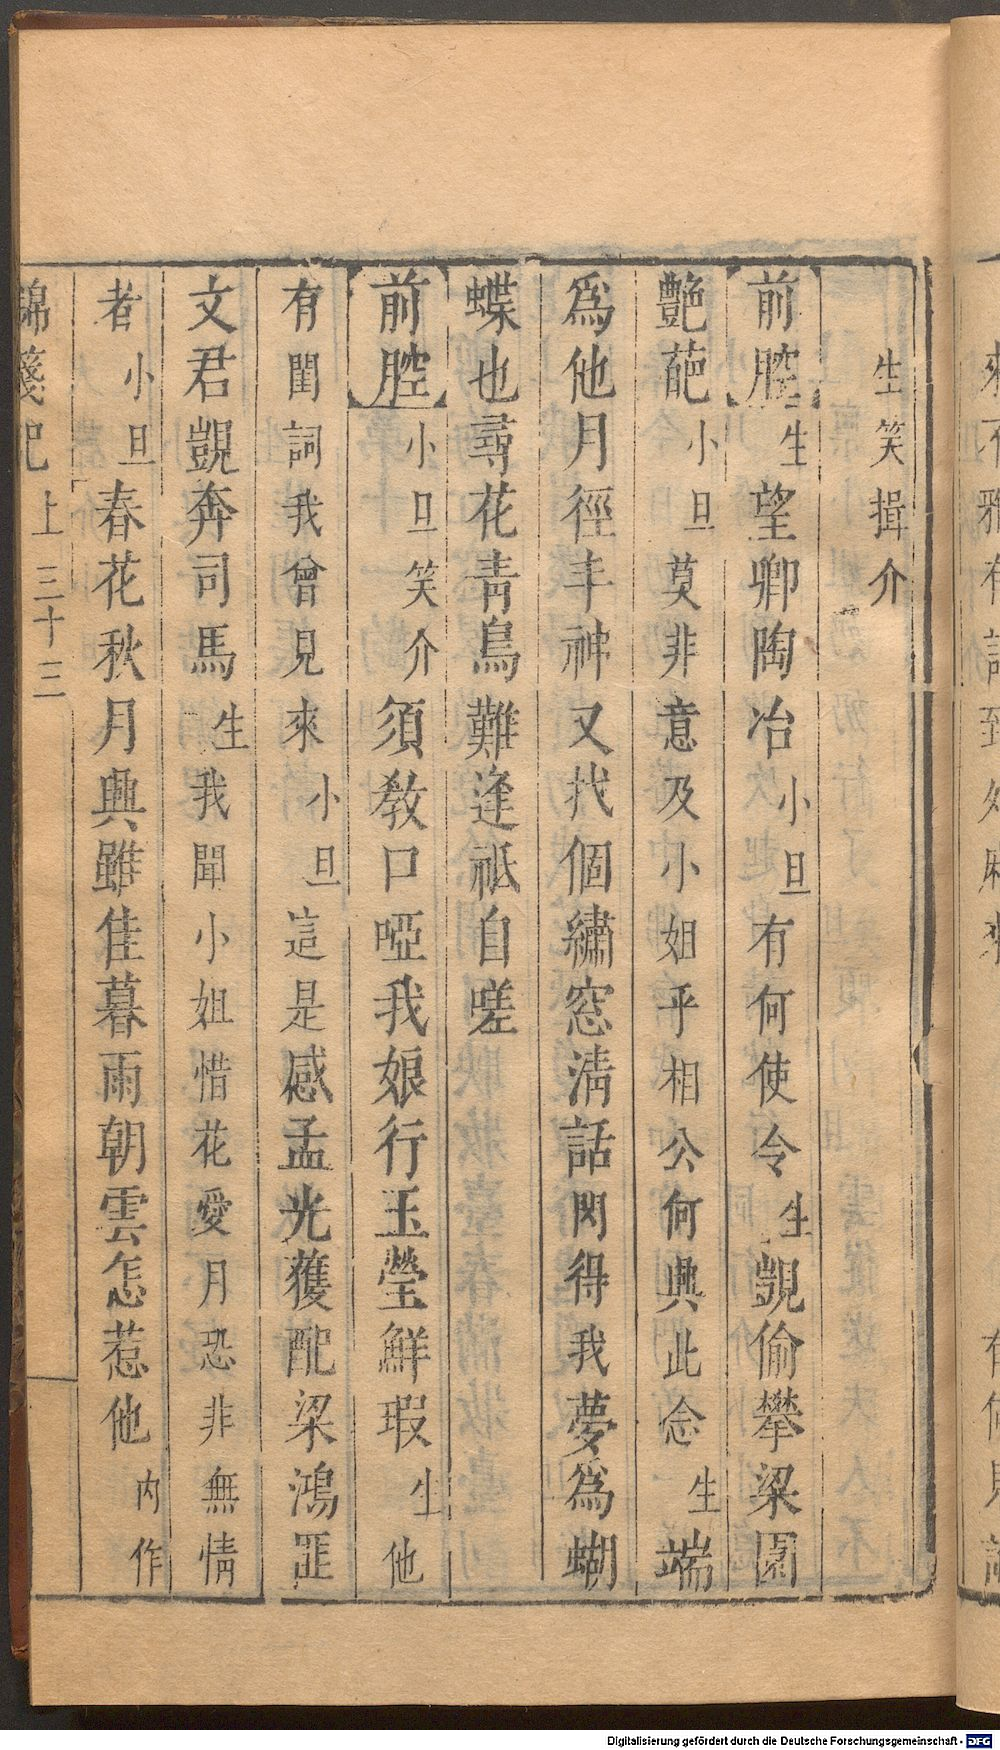 生笑揖介
前腔生望卿陶冶小旦有何使令生覬偷攀梁園
艷葩小旦莫非意及小姐乎相公何興此念生端
爲他月徑丰神又找個繡窓清話閃得我夢爲蝴
蝶也尋花青鳥難逢祇自嗟
前腔小旦笑介須教口啞我娘行玉瑩鮮瑕生他
有閨詞我曾見來小旦這是感孟光獲配梁鴻詎
文君覬奔司馬生我聞小姐惜花愛月恐非無情
者小旦春花秋月興雖佳暮雨朝雲怎惹他內作
錦箋記 上 三十三
Digitalisierung gefördert durch die Deutsche Forschungsgemeinschaft - DFG